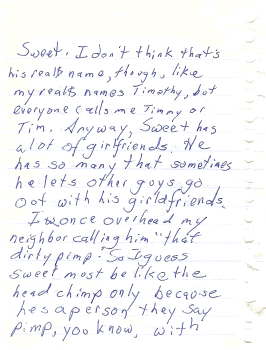 Sweet. I don't think that's
his real name, though, like
my real names Timothy, but
everyone calls me Timmy or
Tim. Anyway, Sweet has
a lot of girlfriends. He
has so many that sometimes
he lets other guys go
oot with his girldfriends.
I wonce overhead my
neighbor calling him "that
dirty pimp." So I guess
sweet most be like the
head chimp only because
hes a person they say
pimp, you know, with